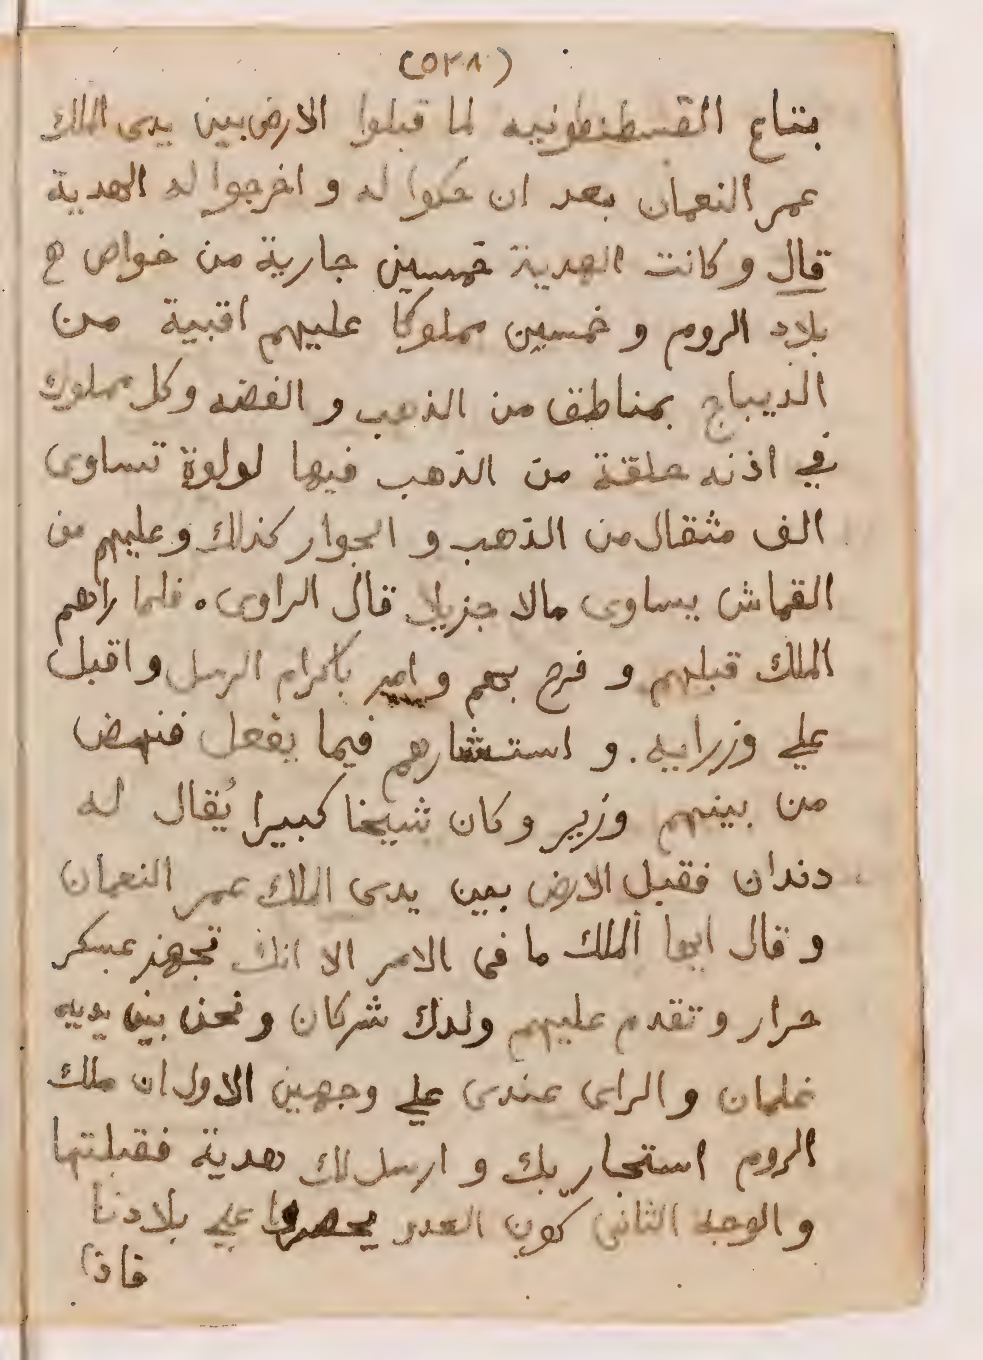 (٥٢٨)
بتاع القسطنطونيه لما قبلوا الارض بين يدى الملك
عمر النعمان بعد ان حكوا له و اخرجوا له الهدية
قال و كانت الهدية خمسين جارية من خواص
بلاد الروم و خمسين مملوكا عليهم اقبية من
الديباج بمناطق من الذهب و الفضه وكل مملوك
في اذنه حلقة من الذهب فيها لولوة تساوى
الف مثقال من الذهب و الجوار كذلك وعليهم من
القماش يساوى مالا جزيلا قال الراوى . فلما راهم
الملك قبلهم و فرح بهم و امر باكرام الرسل و اقبل
علي وزرايه . و استشارهم فيما يفعل فنهض
من بينهم وزير و كان شيخا كبيرا يُقال له
دندان فقبل الارض بين يدى الملك عمر النعمان
و قال ايها الملك ما في الامر الا انك تجهز عسكر
جرار و تقدم عليهم ولدك شركان و نحن بين يديه
غلمان و الراى عندى علي وجهين الاول ان ملك
الروم استجار بك و ارسل لك هدية فقبلتها
و الوجه الثانى كون العدو علي بلادنا
فاذا